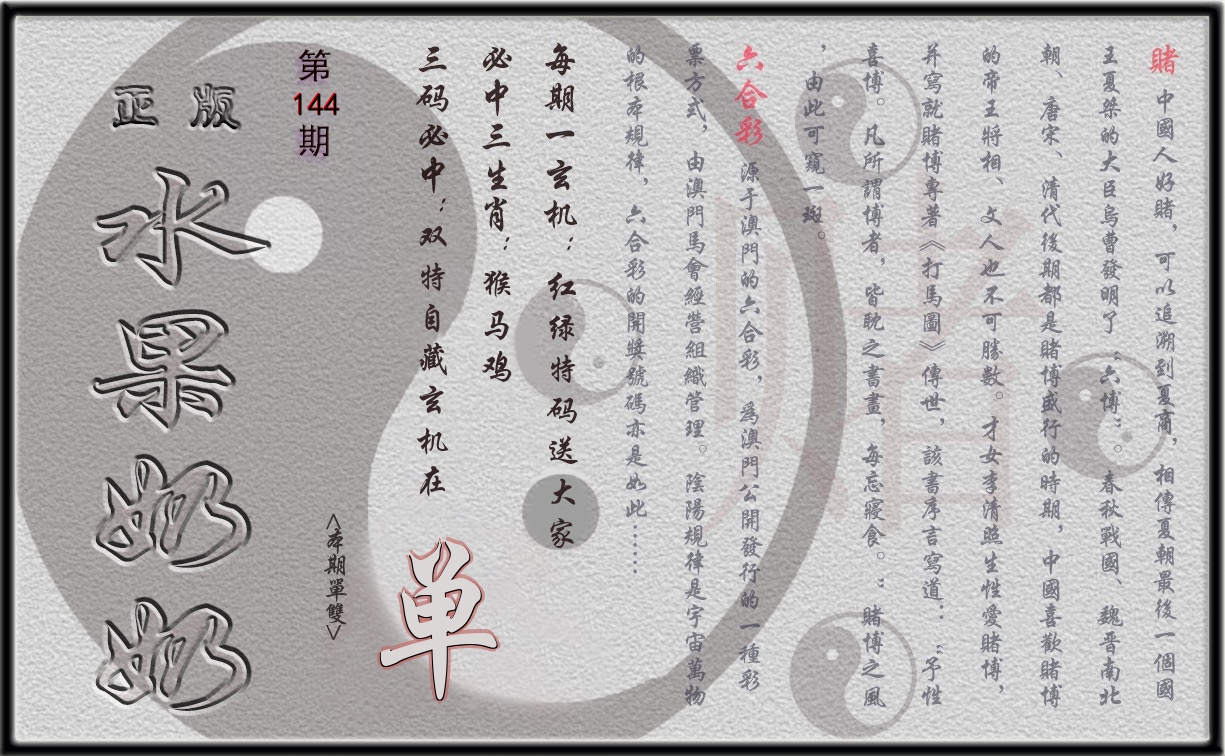 賭 中國人好賭，可以追溯到夏商，相傳夏朝最後一個國
王夏桀的大臣烏曹發明了“六博”。春秋戰國、魏晋南北
朝、唐宋、清代後期都是賭博盛行的時期，中國喜歡賭博
的帝王將相、文人也不可勝數。才女李清照生性愛賭博，
并寫就賭博專著《打馬圖》傳世，該書序言寫道：“予性
喜博。凡所謂博者，皆耽之書畫，每忘寢食。：賭博之風
，由此可窺一斑。
六合彩 源于澳門的六合彩，為澳門公開發行的一種彩
票方式，由澳門馬會經營組織管理。陰陽規律是宇宙萬物
的根本規律，六合彩的開獎號碼亦是如此……
每期一玄机：红绿特码送大家
必中三生肖：猴马鸡
三码必中：双特自藏玄机在
单
<本期單雙>
第
144
期
正版
水果奶奶
賭